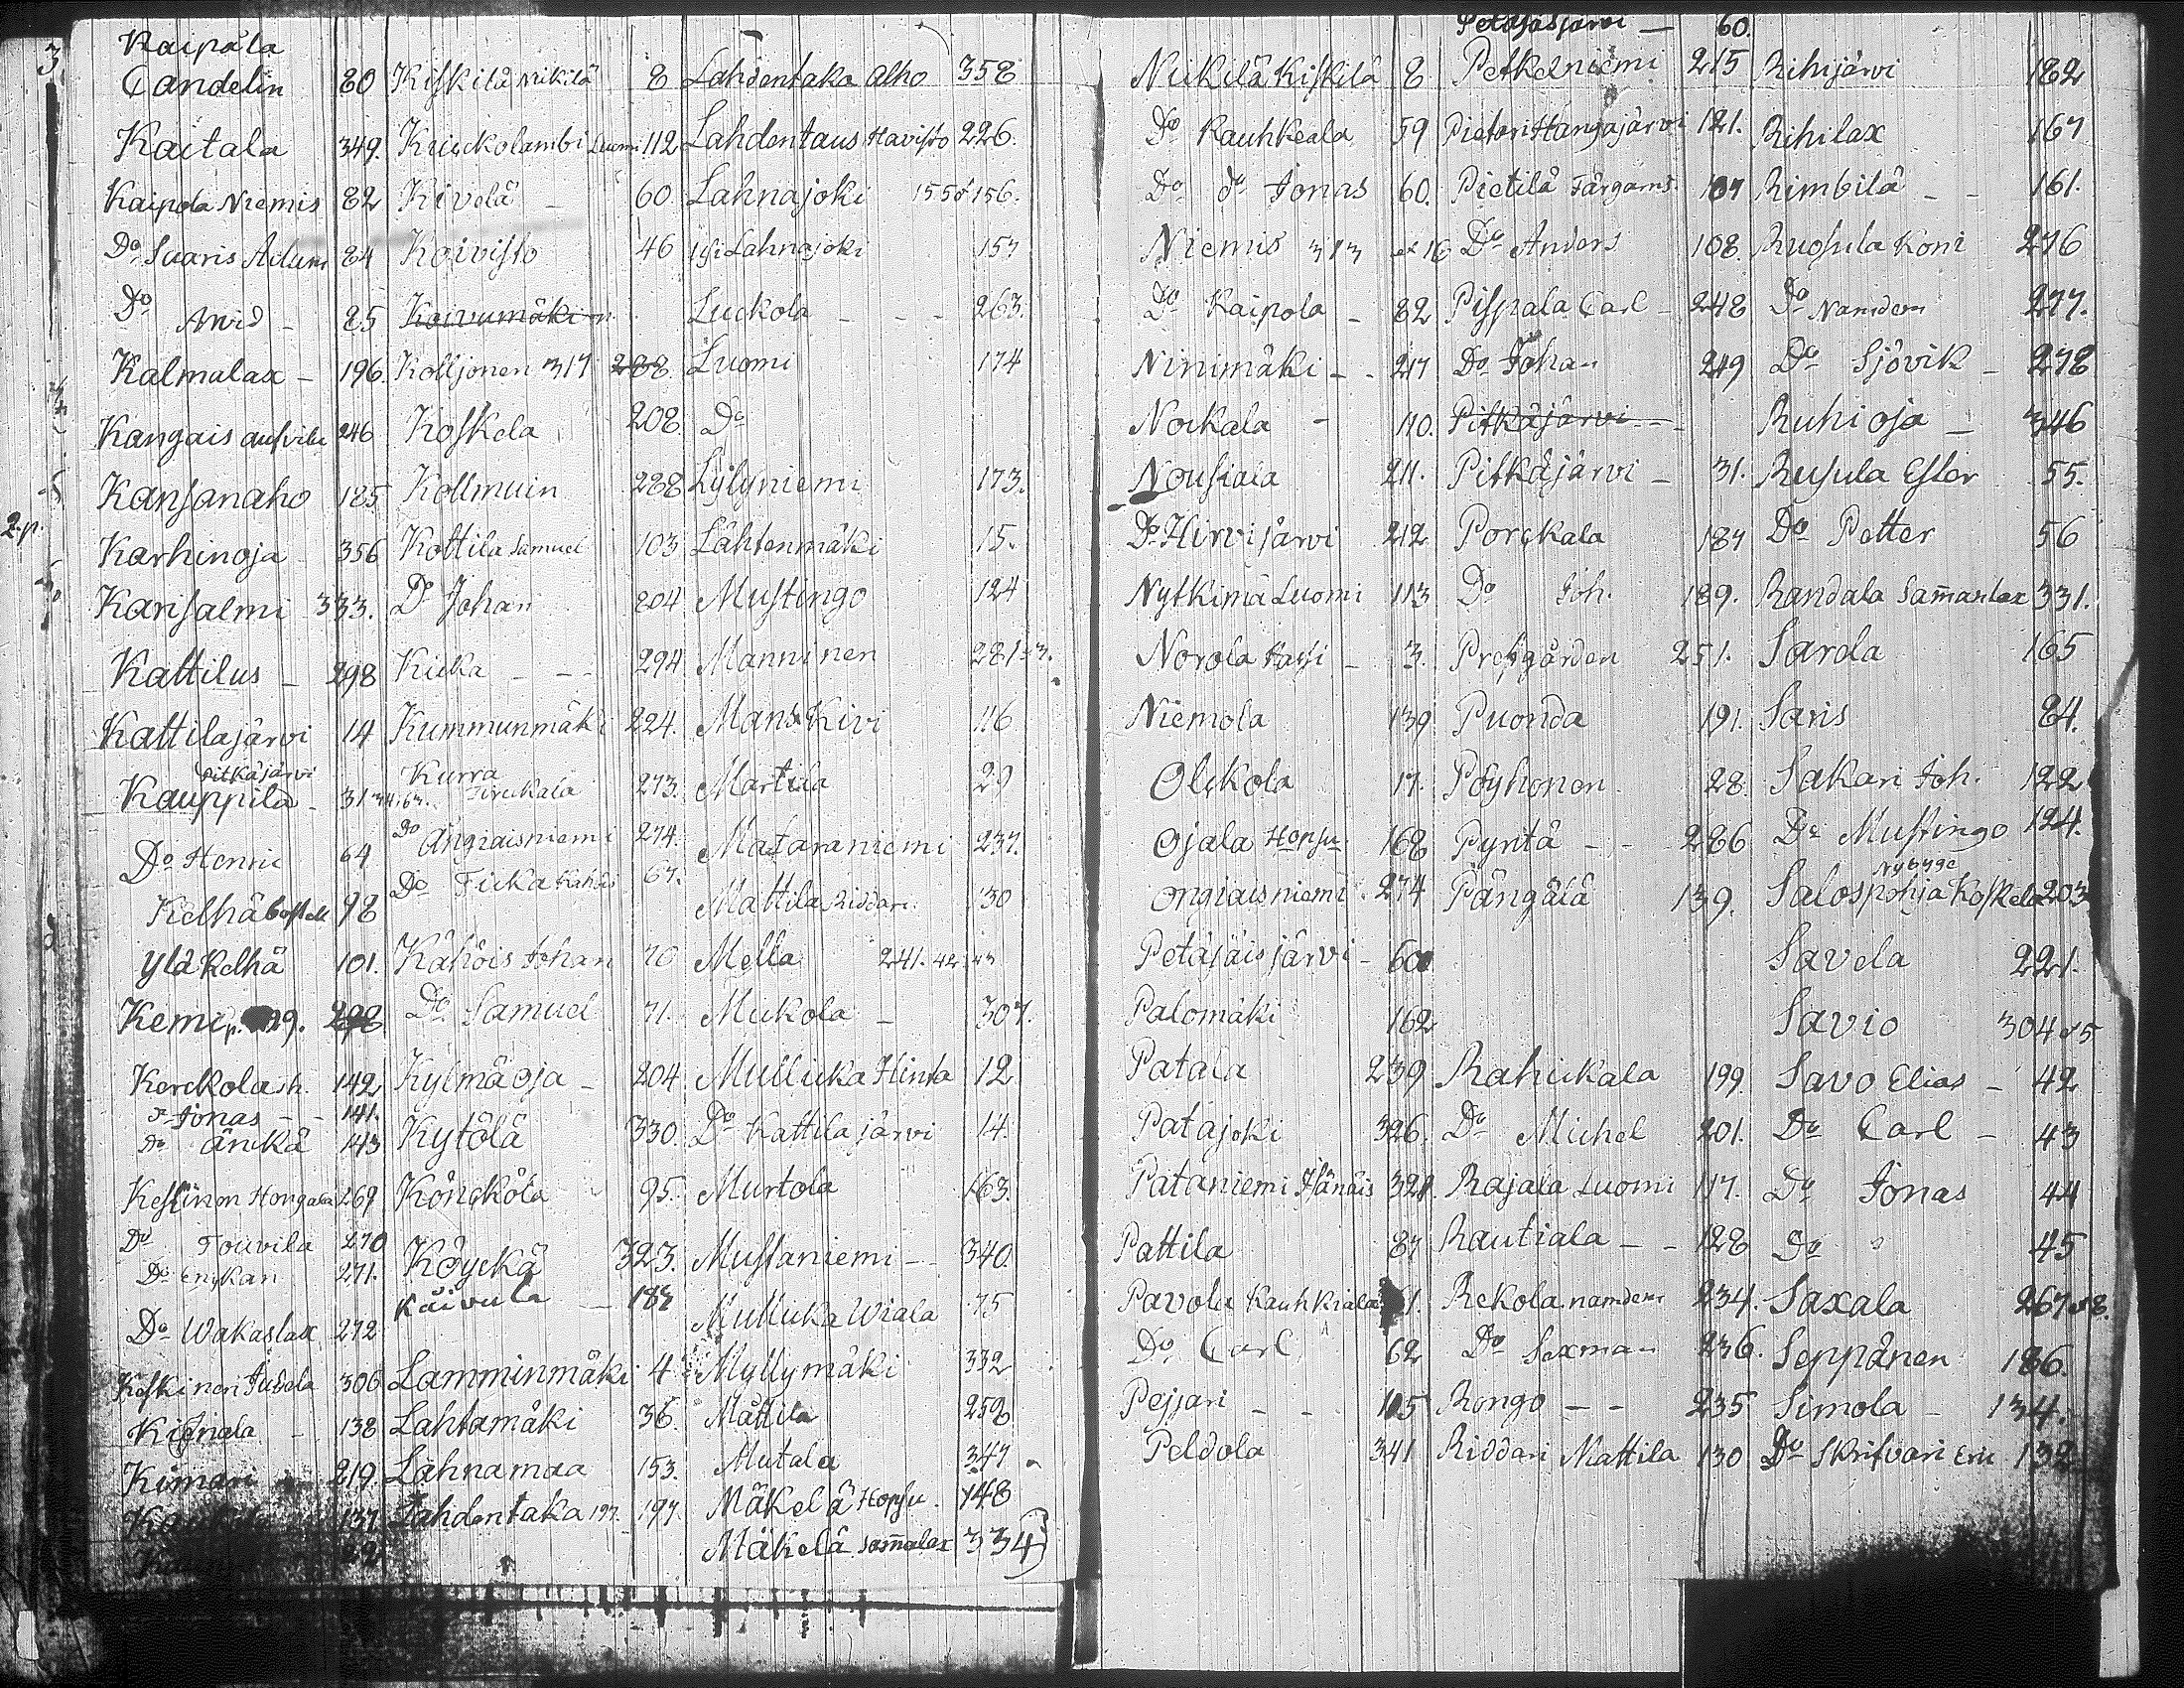 Kaipala
Candelin 80
Kaitala 349.
Kaipola Niemis 82
Do Suaris Adam 84
Do Arvid - 85
Kalmalax - 196
Kangais 246
Kansanaho 185
Karhinoja 356
Karisalmi 333.
Kattilus - 298
Kattilajärvi 14
Pitkäjärvi
Kauppila - 31
Do Henric 64
Kelhä 98
Ylä Kelhä 101.
Kemi
Kerckola 142
Jonas - - 141.
Do Änckä 143
Keskinen Hongala 269
Do Touvila 270
Do 271.
Do Wakaslax 272
Keskinen Judela 306
138
Kimari 219.
137
Kiskilä Nikilä 8
Kiuckolambi Luomi 112
Kivelä - 60.
Koivisto 46
Koivumäki
Kolljonen 317 288
Koskela 208.
Kollmuin 288
Kottila Samuel 103
Do Johan 204
Kicka - - - 294
Kummunmäki 224.
Kurra
273.
Do Ängiaisniemi 274.
Do Ficka Kahois 67.
Kähöis Johan 70
Do Samuel 71.
Kylmäoja - 204
Kytölä 330.
Könckölä 95.
Köyckä 323.
Käivula - 187
Lamminmäki 4
Lahtamäki 36.
Lahnamaa 153.
Lahdentaka 197. 197.
Lahdentaka Alho 358
Lahdentaus Havisto 226.
Lähnajoki 155 o 156.
Isi Lahnajoki 157
Luckola - - - 263.
Luomi 174
Do
Lylyniemi 173.
Lähtenmäki 15.
Mustingo 124
Manninen 281
Mans Kivi 116
Martila 29
Mataraniemi 237.
Mattila Riddari 130
Mella 241. 42. 43
Mickola - 307.
Mullicka Hinta 12
Do Kattilajärvi 14.
Murtola 163.
Mustaniemi - - 340.
Mullicka Wiala 75
Myllymäki 332
Mättila 259
Mutala 347
Mäkelä Hopsu. 148
Mäkelä Sammalax 334
Nickilä Kiskilä 8
Do Rauhkeala 59
Do do Jonas 60.
Niemis 313 et 16
Do Kaipola - 82
Ninimäki - - 217
Nockala - 110.
Nousiala 211.
Do Hirvijärvi 212
Nytkimä Luomi 113
Norola Hassi - 3.
Niemola 139
Olckola 17.
Ojala Hopsu 168
Ongiaisniemi 274
Petäjäisjärvi - 60
Palomäki 162
Patala 239
Patajoki 326.
Pataniemi
Pattila 87
Pavola Rauhkiala 61.
Do Carl 62
Pejsari - - 105
Peldola 341
Petäjäsjärvi - 60.
Petkelniemi 215
Pietari Hangajärvi 121.
Pietilä Färgarns 107
Do Anders 108.
Pispala Carl - 248
Do Johan 249
Pitkäjärvi - -
Pitkäjärvi - 31.
Porckala 187
Do Joh. 189.
Prestgården 251.
Puonda 191.
Pöyhönen. 28.
Pyntä - - 286
Pängälä 139.
Rahickala 199.
Do Michel 201.
Rajala Luomi 117.
Rautiala - - 128
Rekola namdem 234.
Do Saxman 236.
Rongo - - 235
Riddari Mattila 130
Rihijärvi 182
Rihilax 167
Rimbilä - - 161.
Ruosula Koni 276
Do Namdem 277.
Do Sjövik - 278
Ruhioja - 346
Rusula Ester 55.
Do Petter 56
Randala Sammanlax 331.
Sarela 165
Saris 84.
Sakari Joh. 122
Do Mustingo 124.
Nybyge
Salospohja Koskela 203
Savela 221.
Savio 304 o 5
Savo Elias - 42
Do Carl - 43
Do Jonas 44
Do 45
Saxala 267 o 8.
Seppänen 186.
Simola - 134.
Do Skrifvari Eric 132